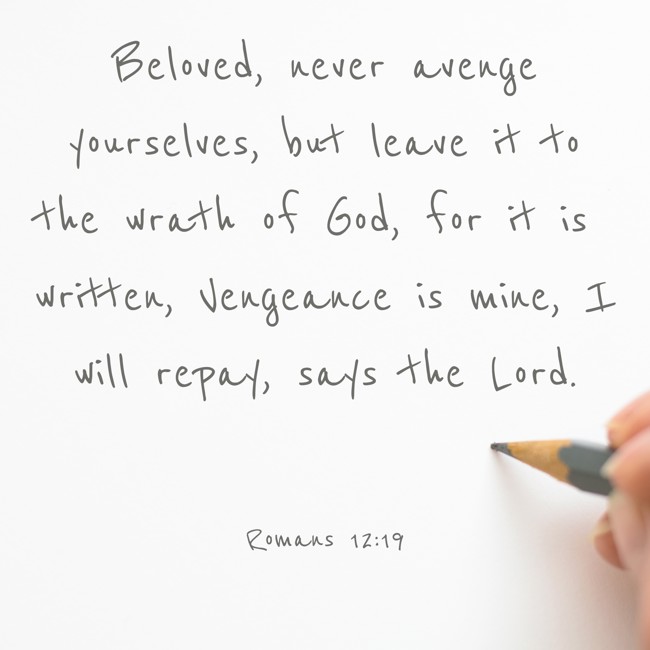 Beloved, never avenge
yourselves, but leave it to
the wrath of God, for it is
written, Vengeance is mine, I
will repay, says the Lord.
Romans 12:19